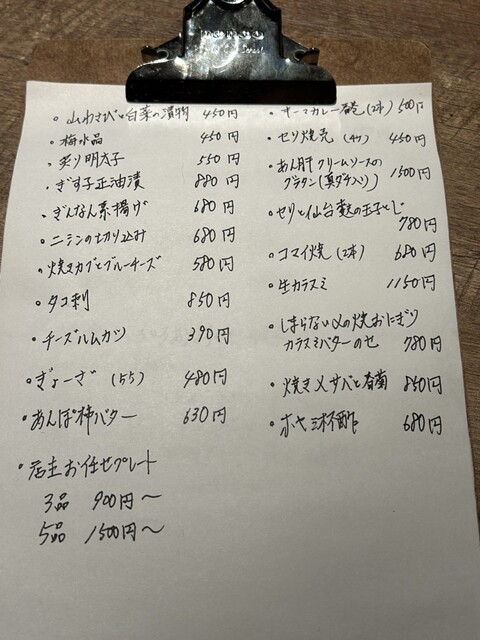 ・山わさびと白菜の漬物 450円
・梅水晶 450円
・炙り明太子 550円
・ぎす子正油漬 880円
・ぎんなん素揚げ 680円
・ニシンの切り込み 680円
・焼きカブとブルーチーズ 580円
・タコ刺 850円
・チーズハムカツ 390円
・ぎょーざ (5コ) 480円
・あんぽ柿バター 630円
・店主お任せプレート
3品 900円〜
5品 1500円〜
・キーマカレー春巻(2本) 500円
・セリ焼売 (4ケ) 450円
・あん肝クリームソースの
グラタン(真ダチ入り) 1500円
・セリと仙台麩の玉子とじ
780円
・コマイ焼(2本) 680円
・生カラスミ 1150円
・しまらない〆の焼おにぎり
カラスミバターのせ 780円
・焼き〆サバと春菊 850円
・ホヤ三杯酢 680円